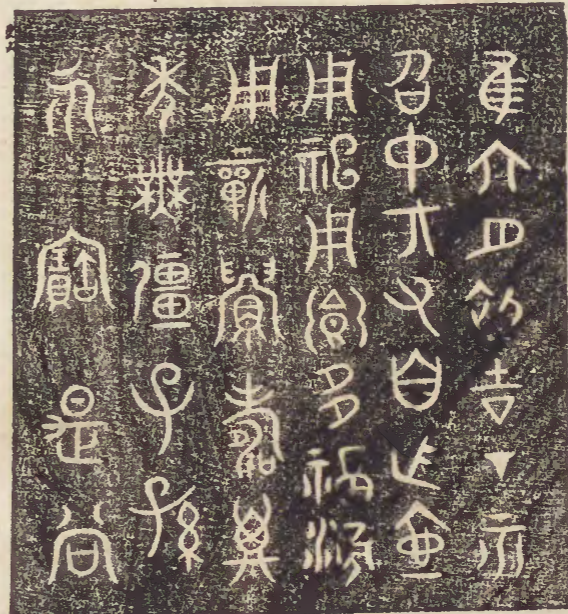 隹六月初吉丁亥
召中丂父自乍壺
用祀用鄉多福滂
用蘄眉壽萬
年無疆子孫
永寶是尚